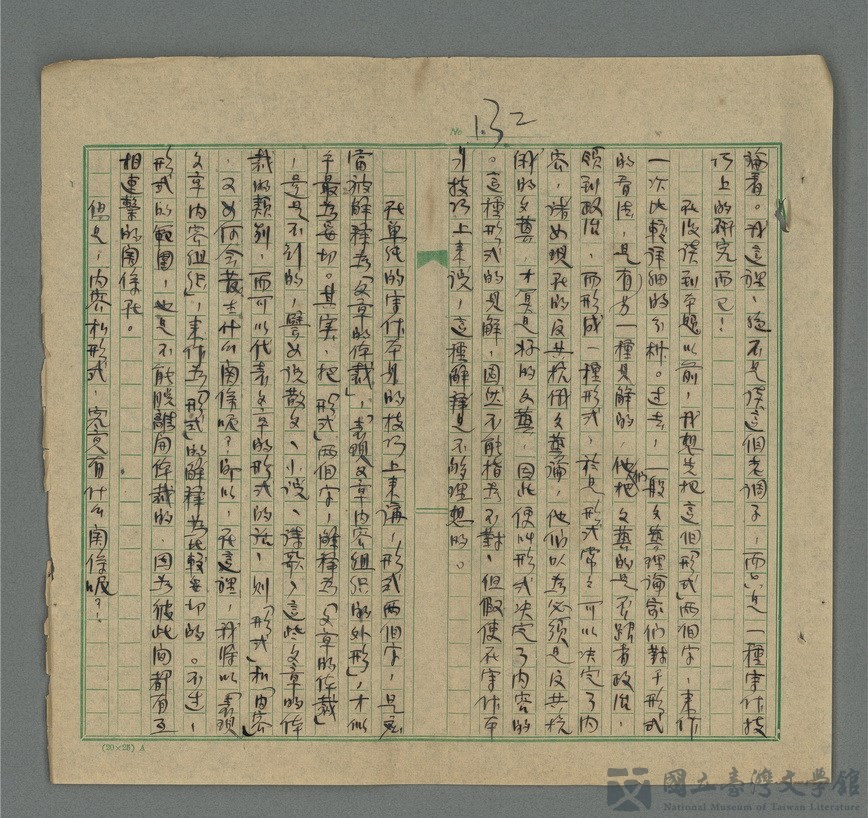 No 132
論着。我這裡，絕不是談這個老調子，而只是一種寫作技
巧上的研究而已！
在沒談到本題以前，我想先把這個「形式」兩個字，來作
一次比較詳細的分析。過去，一般文藝理論家們對于形式
的看法，是有另一種見解的，他們把文藝的是不跟着政治，
領到政治，而形成一種形式，於是形式常常可以決定了內
容，諸如現在的反共抗俄文藝論，他們以為必須是反共抗
俄的文藝，才算是好的文藝，因此便叫形式決定了內容的
。這種形式的見解，固然不能指為不對，但假使在寫作本
身技巧上來說，這種解釋是不够理想的。
在單純的寫作本身的技巧上來講，形式兩個字，是應
當被解釋為「文章的体裁」，「表現文章內容組織的外形」，才似
乎最為妥切。其實，把「形式」兩個字，解釋為「文章的体裁」
，是是不到的，譬如說散文、小說、詩歌，這些文章的体
裁的類別，而可以代表文章的形式的話，則「形式」和「內容」
，又如何會發生什么關係呢？所以，在這裡，我將以「表現
文章內容組織」，來作為「形式」的解釋為比較妥切的。不过，
形式的範圍，也是不能脫離開体裁的，因為彼此間都有互
相連繫的關係在。
但是，內容和形式，究竟有什么關係呢？！
(20×25) A
國立臺灣文學館
National Museum of Taiwan Literature